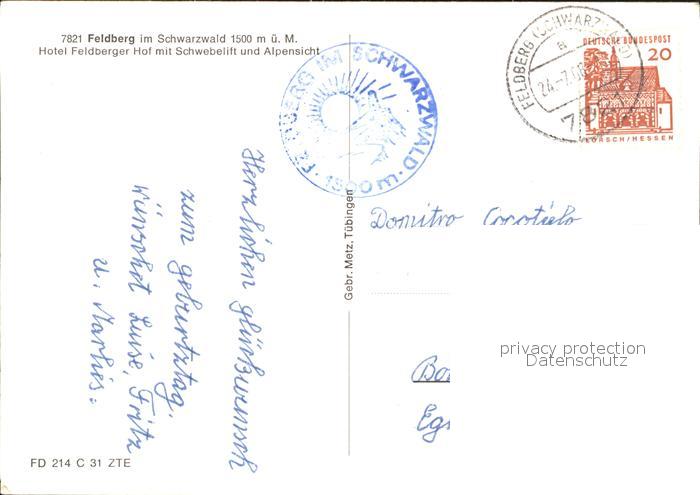 7821 Feldberg im Schwarzwald 1500 m ü. M.
Hotel Feldberger Hof mit Schwebelift und Alpensicht
FELDBERG IM SCHWARZWALD
1500 m
FELDBERG (SCHWARZWALD)
a
24.-7.68
DEUTSCHE BUNDESPOST
20
LORSCH/HESSEN
Herzlichen glückwunsch
zum geburtztag.
wünschet Luise, Fritz
u.
Gebr. Metz, Tübingen
Domitro
privacy protection
Datenschutz
FD 214 C 31 ZTE